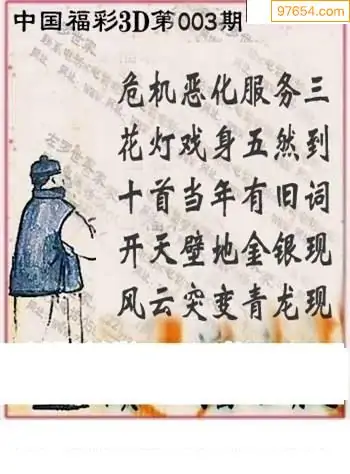 97654.com
中国福彩3D第003期
危机恶化服务三
花灯戏身五然到
十首当年有旧词
开天壁地金银现
风云突变青龙现